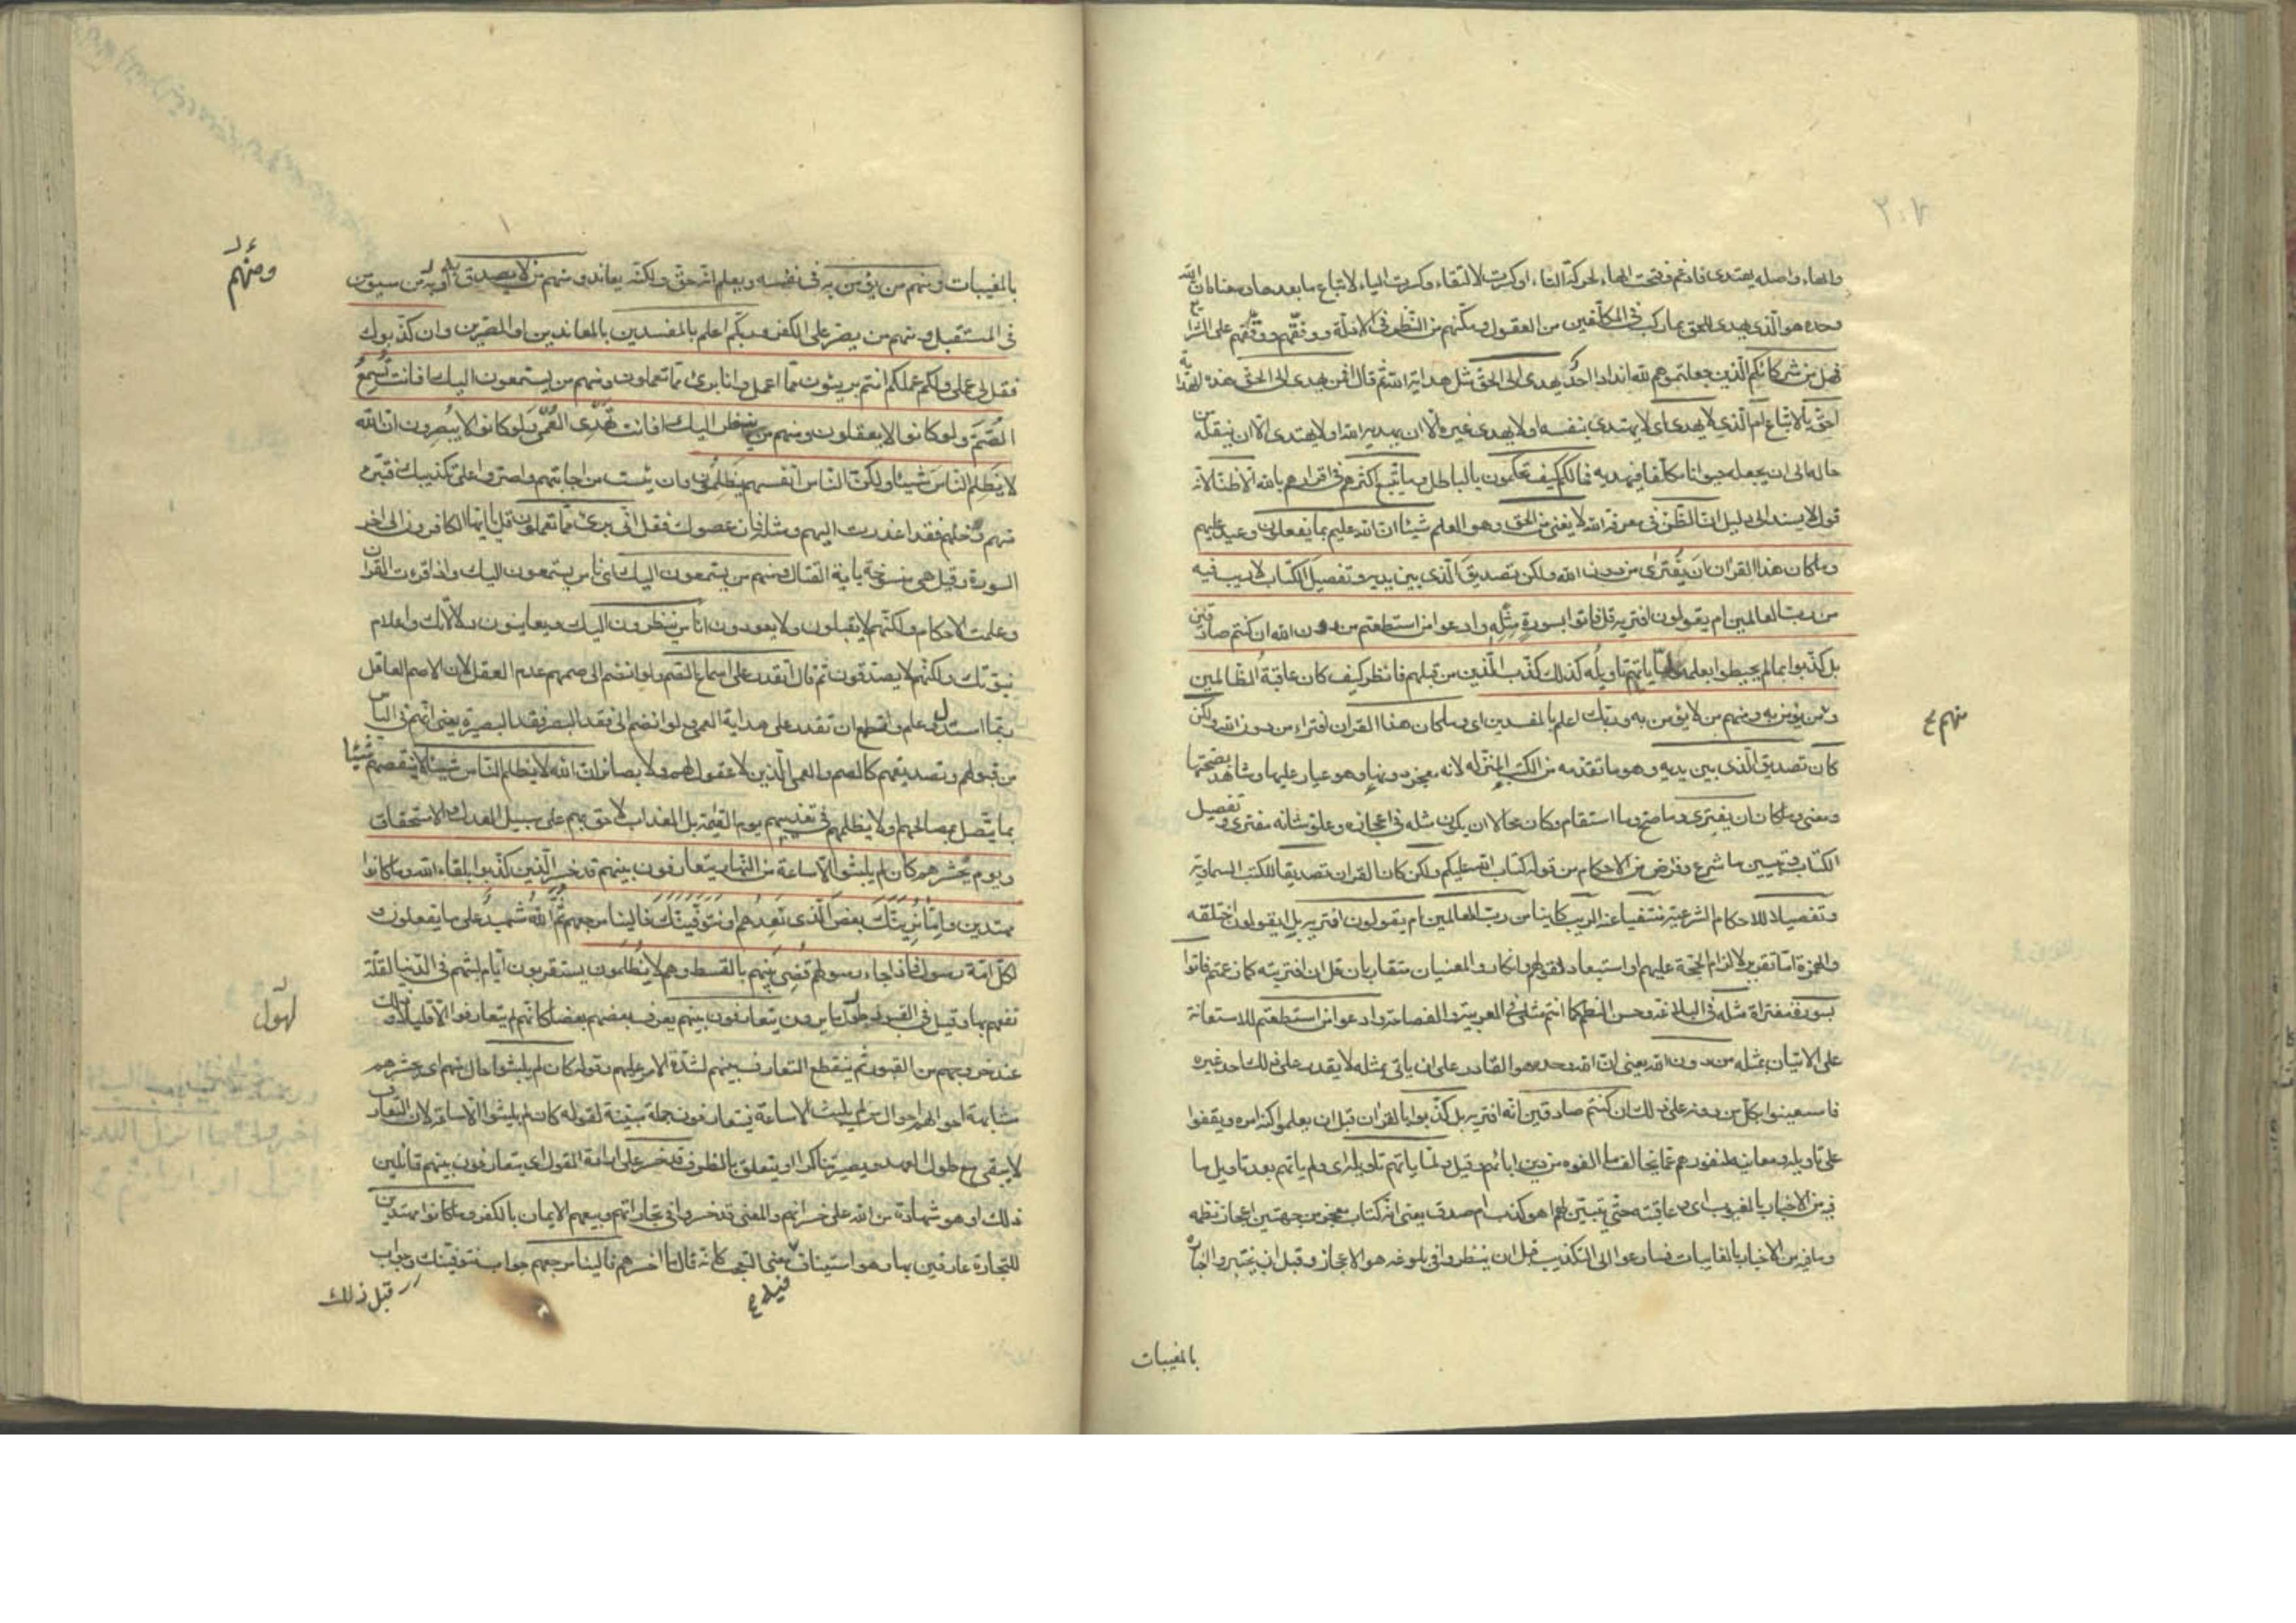 ٢٠٧
والهاء واصله يهتدى فادغم وفتحت الهاء لحركة التاء او كسرت لالتقاء وكسرت الياء لاتباع ما بعدها ومعناه ان الله
وحده هو الذى يهدى للحق بما ركب فى المكلفين من العقول ومكنهم من النظر فى الادلة ووفقهم ووقفهم على الشرايع
فهل من شركائكم الذين جعلتموهم لله اندادا احد يهدى الى الحق مثل هداية الله ثم قال افمن يهدى الى الحق هذه الهداية
احق بالاتباع ام الذى لا يهدى اى لا يهتدى بنفسه او لا يهدى غيره الا ان يهديه الله او لا يهتدى الا ان ينقله من
حاله الى ان يجعله حيوانا مكلفا فيهديه فمالكم كيف تحكمون بالباطل وما يتبع اكثرهم فى اقرارهم بالله الا ظنا لانه
قول لا يستند الى دليل ان الظن فى معرفة الله لا يغنى من الحق وهو العلم شيئا ان الله عليم بما يفعلون وعيد عليهم
وما كان هذا القران ان يفترى من دون الله ولكن تصديق الذى بين يديه وتفصيل الكتاب لا ريب فيه
من رب العالمين ام يقولون افتريه قل فاتوا بسورة مثله وادعوا من استطعتم من دون الله ان كنتم صادقين
بل كذبوا بما لم يحيطوا بعلمه ولما ياتهم تاويله كذلك كذب الذين من قبلهم فانظر كيف كان عاقبة الظالمين
منهم ع
ومن يؤمن به ومنهم من لا يؤمن به وربك اعلم بالمفسدين اى وما كان هذا القران افتراء من دون الله ولكن
كان تصديق الذى بين يديه وهو ما تقدمه من الكتب المنزلة لانه معجزه دونها وهو عيار عليها وشاهد بصحتها
ومعنى وما كان ان يفترى وما صح وما استقام وكان محالا ان يكون مثله فى اعجازه وعلو شانه مفترى وتفصيل
الكتاب وتبيين ما شرع وفرض من الاحكام من قوله كتاب الله عليكم ولكن كان القران تصديقا للكتب السماوية
وتفصيلا للاحكام الشرعية منتفيا عنه الريب كاينا من رب العالمين ام يقولون افتريه بل ايقولون اختلقه
والهمزة اما تقرير لالزام الحجة عليهم او استبعاد لقولهم وانكار والمعنيان متقاربان قل ان افتريته كما زعمتم فاتوا
بسورة مفتراة مثله فى البلاغة وحسن النظم كما انتم مثلى فى العربية والفصاحة وادعوا من استطعتم للاستعانة
على الاتيان بمثله من دون الله يعنى ان الله وحده هو القادر على ان ياتى بمثله لا يقدر على ذلك احد غيره
فاستعينوا بكل من دونه على ذلك ان كنتم صادقين انه افتريه بل كذبوا بالقران قبل ان يعلموا كنه امره ويقفوا
على تاويله ومعانيه لنفورهم عما يخالف ما الفوه من دين ابائهم وقيل ولما ياتهم تاويله اى ولم ياتهم بعد تاويل ما
فيه من الاخبار بالغيوب اى عاقبته حتى تبين لهم اهو كذب ام صدق يعنى انه كتاب معجز من جهتين اعجاز نظمه
وما فيه من الاخبار بالغايبات فسارعوا الى التكذيب قبل ان ينظروا فى بلوغه حد الاعجاز وقبل ان يختبروا اخباره
بالمغيبات
بالمغيبات ومنهم من يؤمن به فى نفسه ويعلم انه حق ولكنه يعاند ومنهم من لا يصدق به او منهم من سيؤمن
ومنهم
فى المستقبل ومنهم من يصر على الكفر وربكم اعلم بالمفسدين بالمعاندين او المصرين وان كذبوك
فقل لى عملى ولكم عملكم انتم بريئون مما اعمل وانا برئ مما تعملون ومنهم من يستمعون اليك افانت تسمع
الصم ولو كانوا لا يعقلون ومنهم من ينظر اليك افانت تهدى العمى ولو كانوا لا يبصرون ان الله
لا يظلم الناس شيئا ولكن الناس انفسهم يظلمون وان يئست من اجابتهم واصروا على تكذيبك فتبرء
منهم وخلهم فقد اعذرت اليهم ومثله فان عصوك فقل انى برئ مما تعملون قل يا ايها الكافرون الى اخر
السورة وقيل هى منسوخة باية القتال ومنهم من يستمعون اليك اى ناس يستمعون اليك واذا قرءت القران
وعلمت الاحكام ولكنهم لا يقبلون ولا يعودون اناس ينظرون اليك ويعاينون دلائلك واعلام
نبوتك ولكنهم لا يصدقون ثم قال اتقدر على اسماع الصم ولو انضم الى صممهم عدم العقل لان الاصم العاقل
ربما استدل وعلم وافتطمع ان تقدر على هداية العمى ولو انضم الى فقد البصر فقد البصيرة يعنى انهم فى الياس
من قبولهم وتصديقهم كالصم والعمى الذين لا عقول لهم ولا بصائر ان الله لا يظلم الناس شيئا لا ينقصهم شيئا
بما يتصل بمصالحهم او لا يظلمهم فى تعذيبهم يوم القيمة بل العذاب لاحق بهم على سبيل العدل والاستحقاق
ويوم يحشرهم كان لم يلبثوا الا ساعة من النهار يتعارفون بينهم قد خسر الذين كذبوا بلقاء الله وما كانوا
مهتدين واما نرينك بعض الذى نعدهم او نتوفينك فالينا مرجعهم ثم الله شهيد على ما يفعلون و
لكل امة رسول فاذا جاء رسولهم قضى بينهم بالقسط وهم لا يظلمون يستقربون ايام لبثهم فى الدنيا لقلة
لهول
تفهم بها وقيل فى القبور يتعارفون بينهم يعرف بعضهم بعضا كانهم لم يتعارفوا الا قليلا وذلك
عند خروجهم من القبور ثم ينقطع التعارف بينهم لشدة الامر عليهم وقوله كان لم يلبثوا حال منهم اى يحشرهم
مشابهة احوالهم احوال من لم يلبث الا ساعة فيتعارفون جملة مبينة لقوله كان لم يلبثوا الا ساعة لان التعارف
لا يبقى مع طول العهد ويصير تناكرا او يتعلق بالظرف قد خسر على ارادة القول اى يتعارفون بينهم قائلين
ذلك او هو شهادة من الله على خسرانهم والمعنى قد خسروا فى تجارتهم وبيعهم الايمان بالكفر وما كانوا مهتدين
للتجارة عارفين بها وهو استيناف فيه معنى التعجب كانه قال ما اخسرهم فالينا مرجعهم جواب نتوفينك وجواب
فيه ع
قبل ذلك